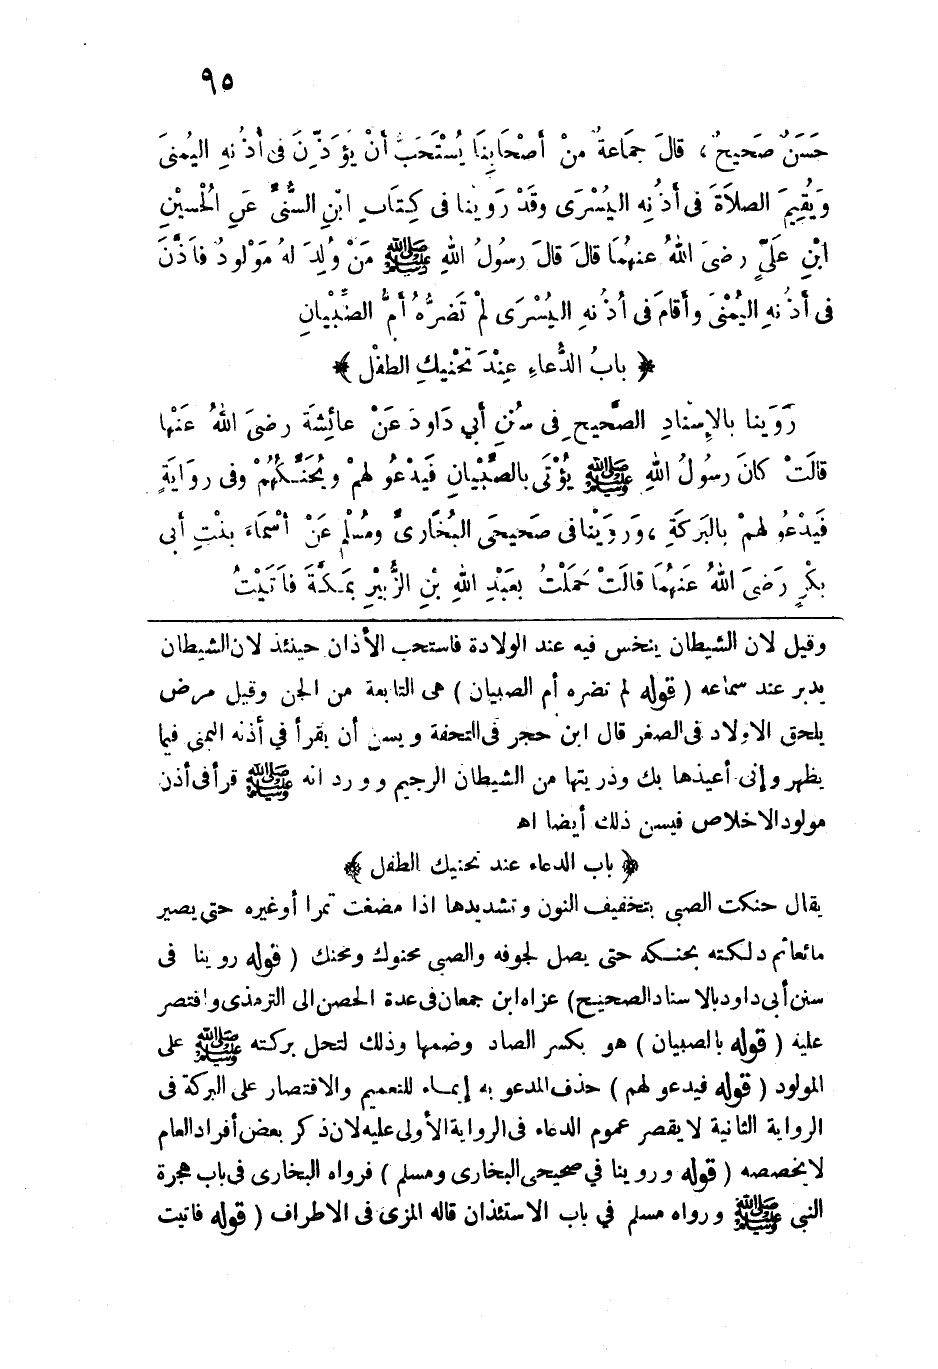 ٩٥
حَسَنٌ صَحيحٌ ، قالَ جَمَاعةٌ منْ أصْحَابِنَا يُسْتَحَبُّ أنْ يُؤَذِّنَ فى أذُنهِ اليُمنىَ
وَيُقِيمَ الصلاَةَ فى أذُنِهِ اليُسْرَى وقَدْ رَوَينا فى كِتَابِ ابْنِ السُّنِّىِّ عَنِ الْحُسيْنِ
ابْنِ عَلَىٍّ رضىَ اللهُ عنهُمَا قالَ قالَ رَسولُ اللهِ ﷺ مَنْ وُلِدَ لهُ مَوْلودٌ فأَذَّنَ
فى أذُنهِ اليُمْنىَ وأقامَ فى أذُنهِ اليُسْرَى لمْ تَضرُّهُ أمُّ الصِّبْيانِ
﴿ بابُ الدُّعاءِ عِنْدَ تحْنيكِ الطفْلِ ﴾
رَوَينا بالإسْنادِ الصَّحيحِ فى سُننِ أبي دَاودَ عَنْ عائِشةَ رضىَ اللهُ عَنْها
قالَتْ كانَ رسولُ اللهِ ﷺ يُؤْتَى بالصِّبْيانِ فَيدْعُو لهمْ ويُحَنِّكُهُمْ وفى روَايَةٍ
فَيدْعُو لهمْ بالبَركَةِ ، وَرَوَيْنا فى صَحيحَى البُخَارىِّ ومُسْلمٍ عَنْ أسْمَاءَ بنْتِ أبى
بكْرٍ رَضىَ اللهُ عَنهُمَا قالَتْ حَمَلْتُ بعَبْدِ اللهِ بْنِ الزُّبيْرِ بمَكَّةَ فأَتَيْتُ
وقيل لان الشيطان ينخس فيه عند الولادة فاستحب الأذان حينئذ لان الشيطان
يدبر عند سماعه ( قوله لم تضره أم الصبيان ) هى التابعة من الجن وقيل مرض
يلحق الاولاد فى الصغر قال ابن حجر فى التحفة ويسن أن يقرأ في أذنه اليمنى فيما
يظهر وإنى أعيذها بك وذريتها من الشيطان الرجيم وورد انه ﷺ قرأ فى أذن
مولود الاخلاص فيسن ذلك أيضا اه
﴿ باب الدعاء عند تحنيك الطفل ﴾
يقال حنكت الصبى بتخفيف النون وتشديدها اذا مضغت تمرا أو غيره حتى يصير
مائعا ثم دلكته بحنكه حتى يصل لجوفه والصبى محنوك ومحنك ( قوله روينا فى
سنن أبى داود بالاسناد الصحيح ) عزاه ابن جمعان فى عدة الحصن الى الترمذى واقتصر
عليه ( قوله بالصبيان ) هو بكسر الصاد وضمها وذلك لتحل بركته ﷺ على
المولود ( قوله فيدعو لهم ) حذف المدعو به إيماء للتعميم والاقتصار على البركة فى
الرواية الثانية لا يقصر عموم الدعاء فى الرواية الأولى عليه لان ذكر بعض أفراد العام
لا يخصصه ( قوله وروينا في صحيحى البخارى ومسلم ) فرواه البخارى فى باب هجرة
النبى ﷺ ورواه مسلم في باب الاستئذان قاله المزى فى الاطراف ( قوله فاتيت